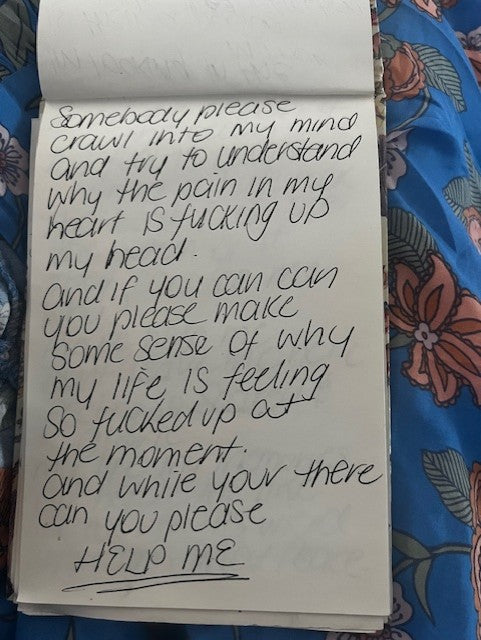 Somebody please
crawl into my mind
and try to understand
why the pain in my
heart is fucking up
my head.
and if you can can
you please make
some sense of why
my life is feeling
so fucked up at
the moment.
and while your there
can you please
HELP ME